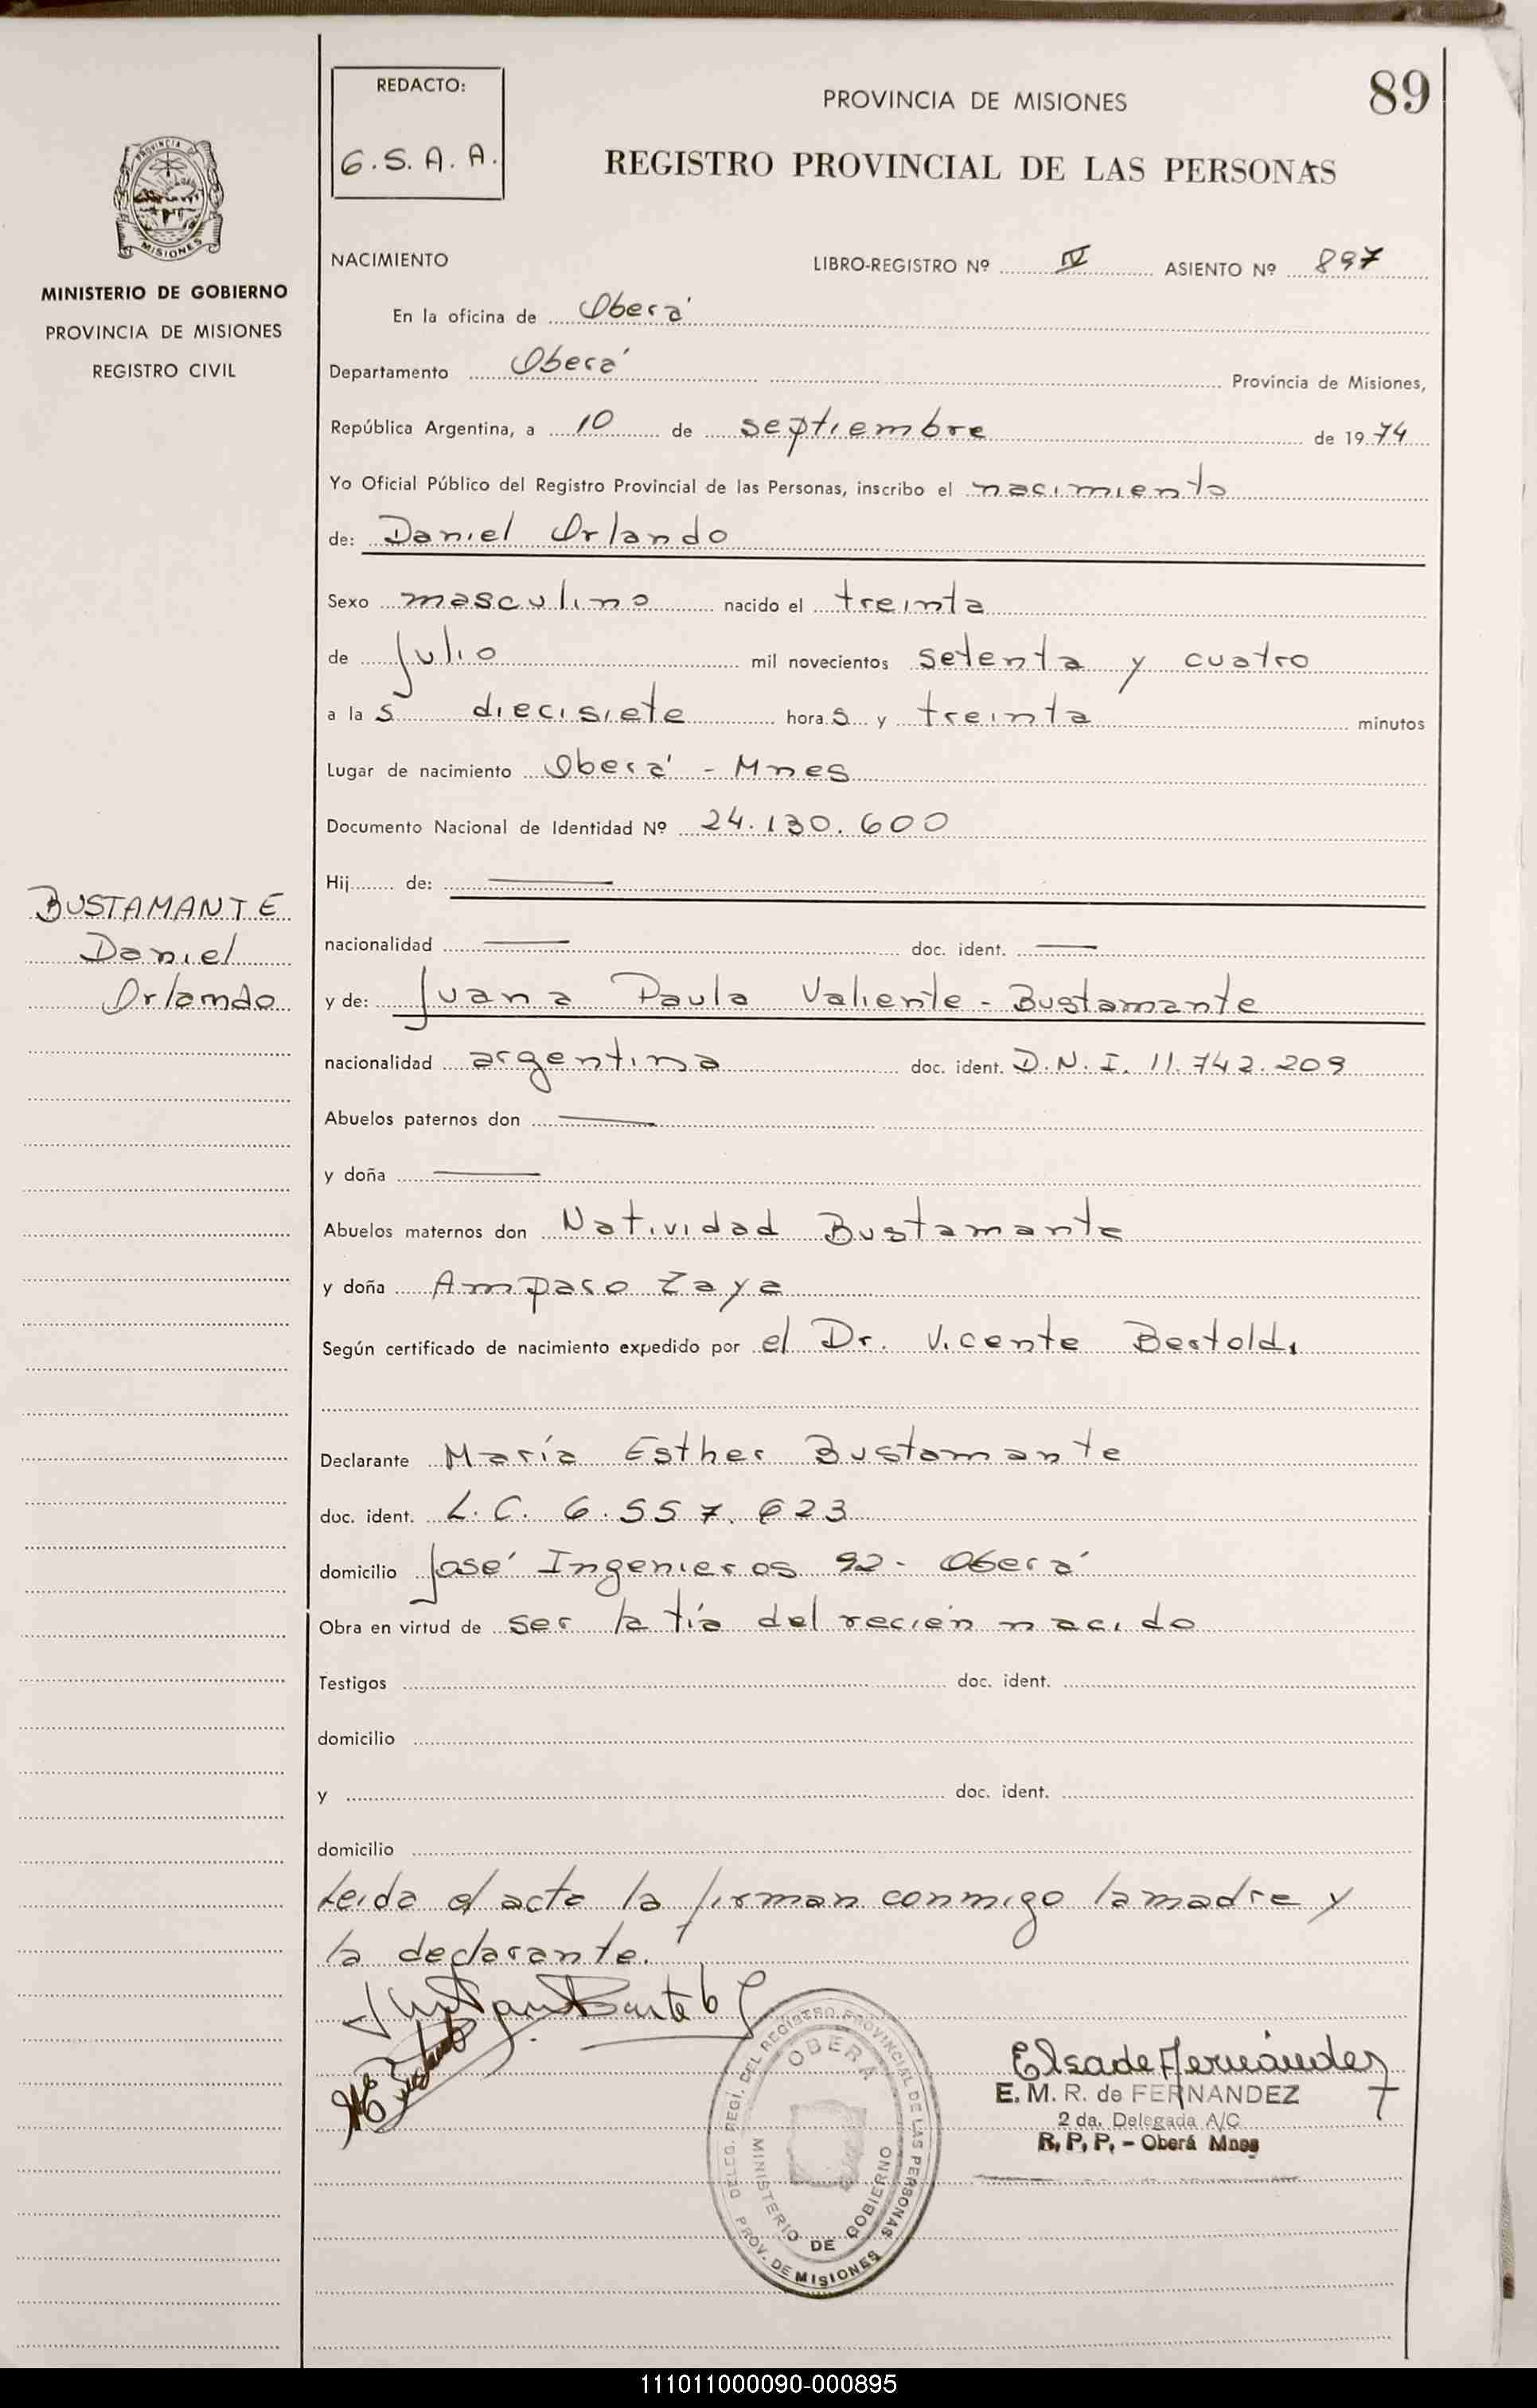 REDACTO:
G.S.A.A.
PROVINCIA DE MISIONES
89
REGISTRO PROVINCIAL DE LAS PERSONAS
PROVINCIA DE
MISIONES
MINISTERIO DE GOBIERNO
PROVINCIA DE MISIONES
REGISTRO CIVIL
NACIMIENTO LIBRO-REGISTRO Nº IV ASIENTO Nº 897
En la oficina de Oberá
Departamento Oberá Provincia de Misiones,
República Argentina, a 10 de septiembre de 1974
Yo Oficial Público del Registro Provincial de las Personas, inscribo el nacimiento
de: Daniel Orlando
Sexo masculino nacido el treinta
de julio mil novecientos setenta y cuatro
a las diecisiete horas y treinta minutos
Lugar de nacimiento Oberá - Mnes
Documento Nacional de Identidad Nº 24.130.600
Hij de: —
BUSTAMANTE
Daniel
Orlando
nacionalidad — doc. ident. —
y de: Juana Paula Valiente - Bustamante
nacionalidad argentina doc. ident. D.N.I. 11.742.209
Abuelos paternos don —
y doña —
Abuelos maternos don Natividad Bustamante
y doña Amparo Zaya
Según certificado de nacimiento expedido por el Dr. Vicente Bertoldi
Declarante María Esther Bustamante
doc. ident. L.C. 6.557.623
domicilio José Ingenieros 92 - Oberá
Obra en virtud de ser la tía del recién nacido
Testigos doc. ident.
domicilio
y doc. ident.
domicilio
Leida el acta la firman conmigo la madre y
la declarante.
Elsa de Fernández
E. M. R. de FERNANDEZ
2 da. Delegada A/C
R. P. P. - Oberá Mnes
DELEG. REGI. DEL REGISTRO PROVINCIAL DE LAS PERSONAS
OBERA
MINISTERIO DE GOBIERNO
PROV. DE MISIONES
111011000090-000895